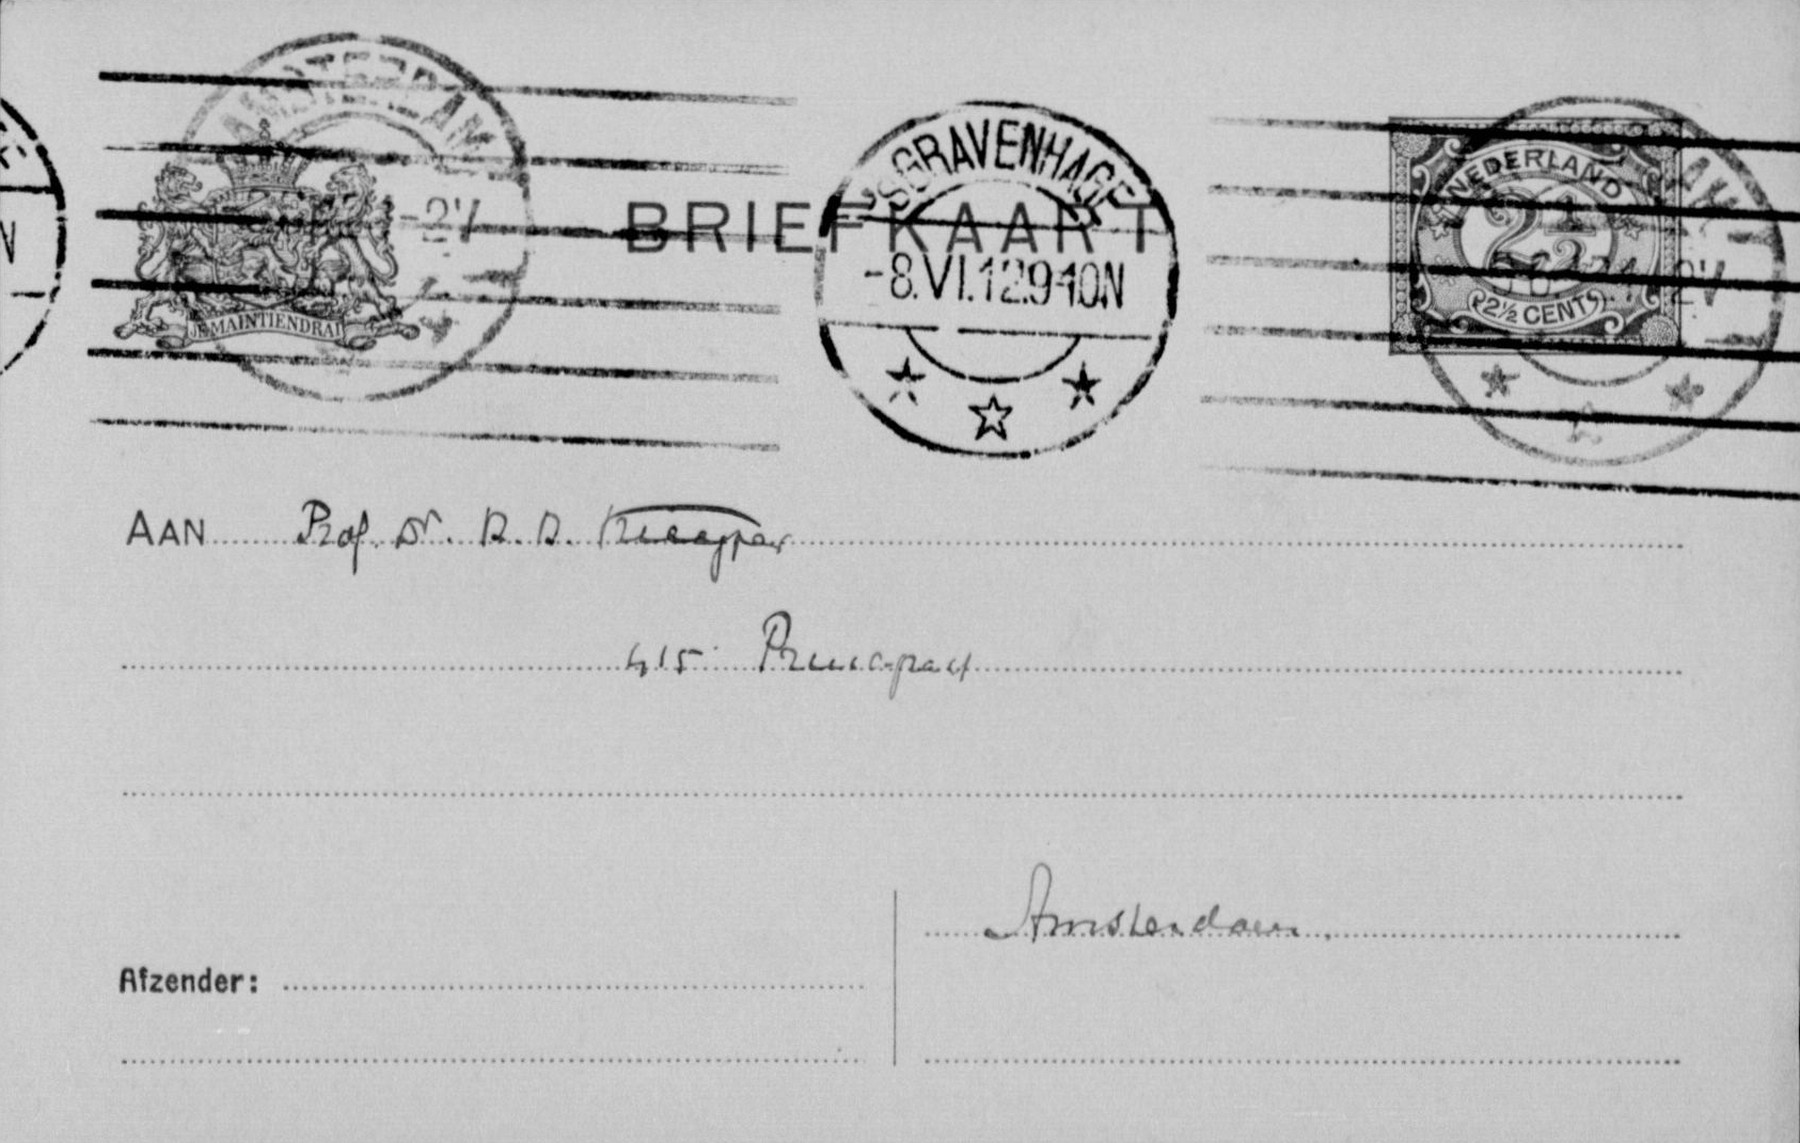 AMSTERDAM
1-2V
'SGRAVENHAGE
-8.VI.12.9-10N
NEDERLAND
2½
2½ CENT
2V
N
JE MAINTIENDRAI
BRIEFKAART
AAN Prof. Dr.
415 Prinsengracht
Amsterdam.
Afzender: